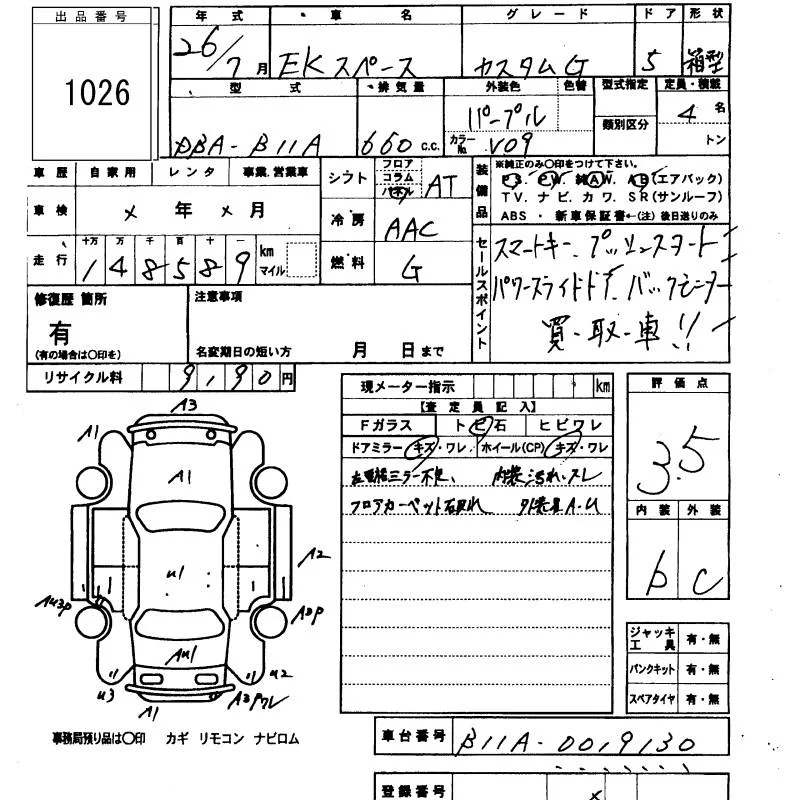 出品番号
1026
年式 車名 グレード ドア 形状
26/7月 EKスペース カスタムG 5 箱型
型式 排気量 外装色 色替 型式指定 定員・積載
DBA-B11A 660 c.c. パープル カラーNo. V09 類別区分 4名 トン
車歴 自家用 レンタ 事業.営業車
車検 × 年 × 月
走行 十万 万 千 百 十 一
148589 km マイル
シフト フロア コラム パネル AT
冷房 AAC
燃料 G
装備品
※純正のみ〇印をつけて下さい。
PS. PW. 純AW. AB(エアバッグ)
TV. ナビ. カワ. SR(サンルーフ)
ABS ・ 新車保証書←(注) 後日送りのみ
セールスポイント
スマートキー、プッシュスタート
パワースライドドア、バックモニター
買・取・車!!
修復歴 箇所
有
(有の場合は〇印を)
注意事項
名変期日の短い方 月 日まで
リサイクル料 9190円
現メーター指示 km
【査定員記入】
Fガラス トビ石 ヒビワレ
ドアミラー キズ・ワレ ホイール(CP) キズ・ワレ
内装汚れ・スレ
フロアカーペット
評価点
3.5
内装 外装
b C
A3
A1
A1
A2
U1
AU3P
A3P
AU1
U3
U2
A1
A3Pワレ
ジャッキ工具 有・無
パンクキット 有・無
スペアタイヤ 有・無
事務局預り品は〇印 カギ リモコン ナビロム
車台番号 B11A-0019130
登録番号